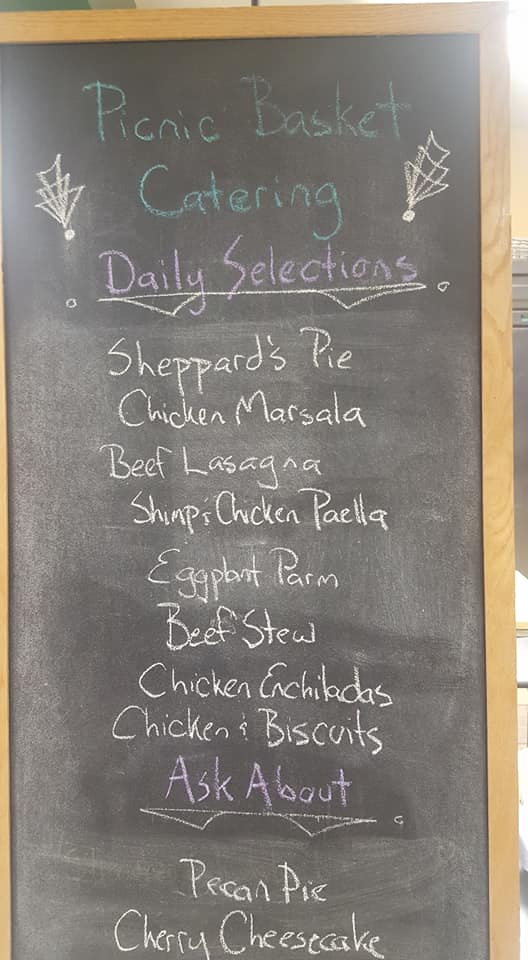 Picnic Basket
Catering
Daily Selections
Sheppard's Pie
Chicken Marsala
Beef Lasagna
Shimp & Chicken Paella
Eggplant Parm
Beef Stew
Chicken Enchiladas
Chicken & Biscuits
Ask About
Pecan Pie
Cherry Cheesecake